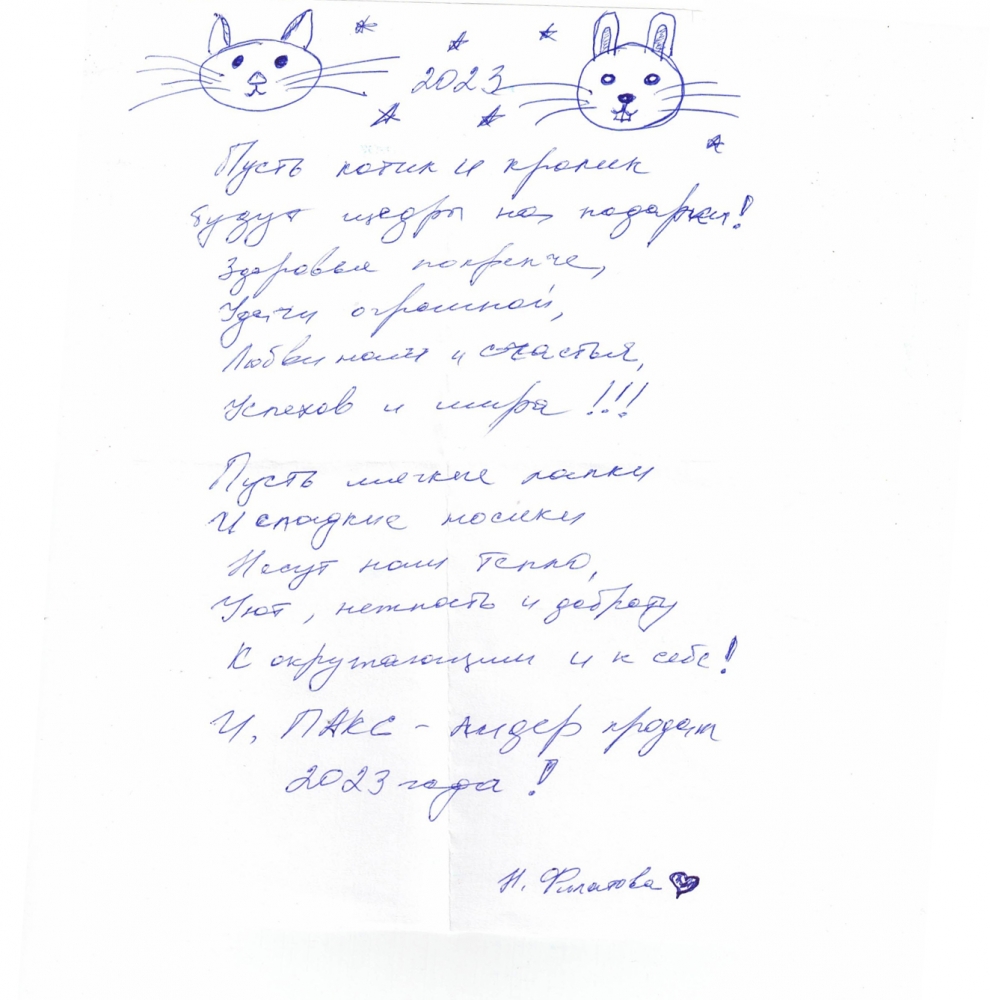 2023
Пусть котик и кролик
будут щедры на подарки!
Здоровья покрепче,
Удачи огромной,
Любви нам и счастья,
Успехов и мира!!!
Пусть мягкие лапки
И сладкие носики
Несут нам тепло,
Уют, нежность и доброту
К окружающим и к себе!
И, ПАКС - лидер продаж
2023 года!
Н. Филатова